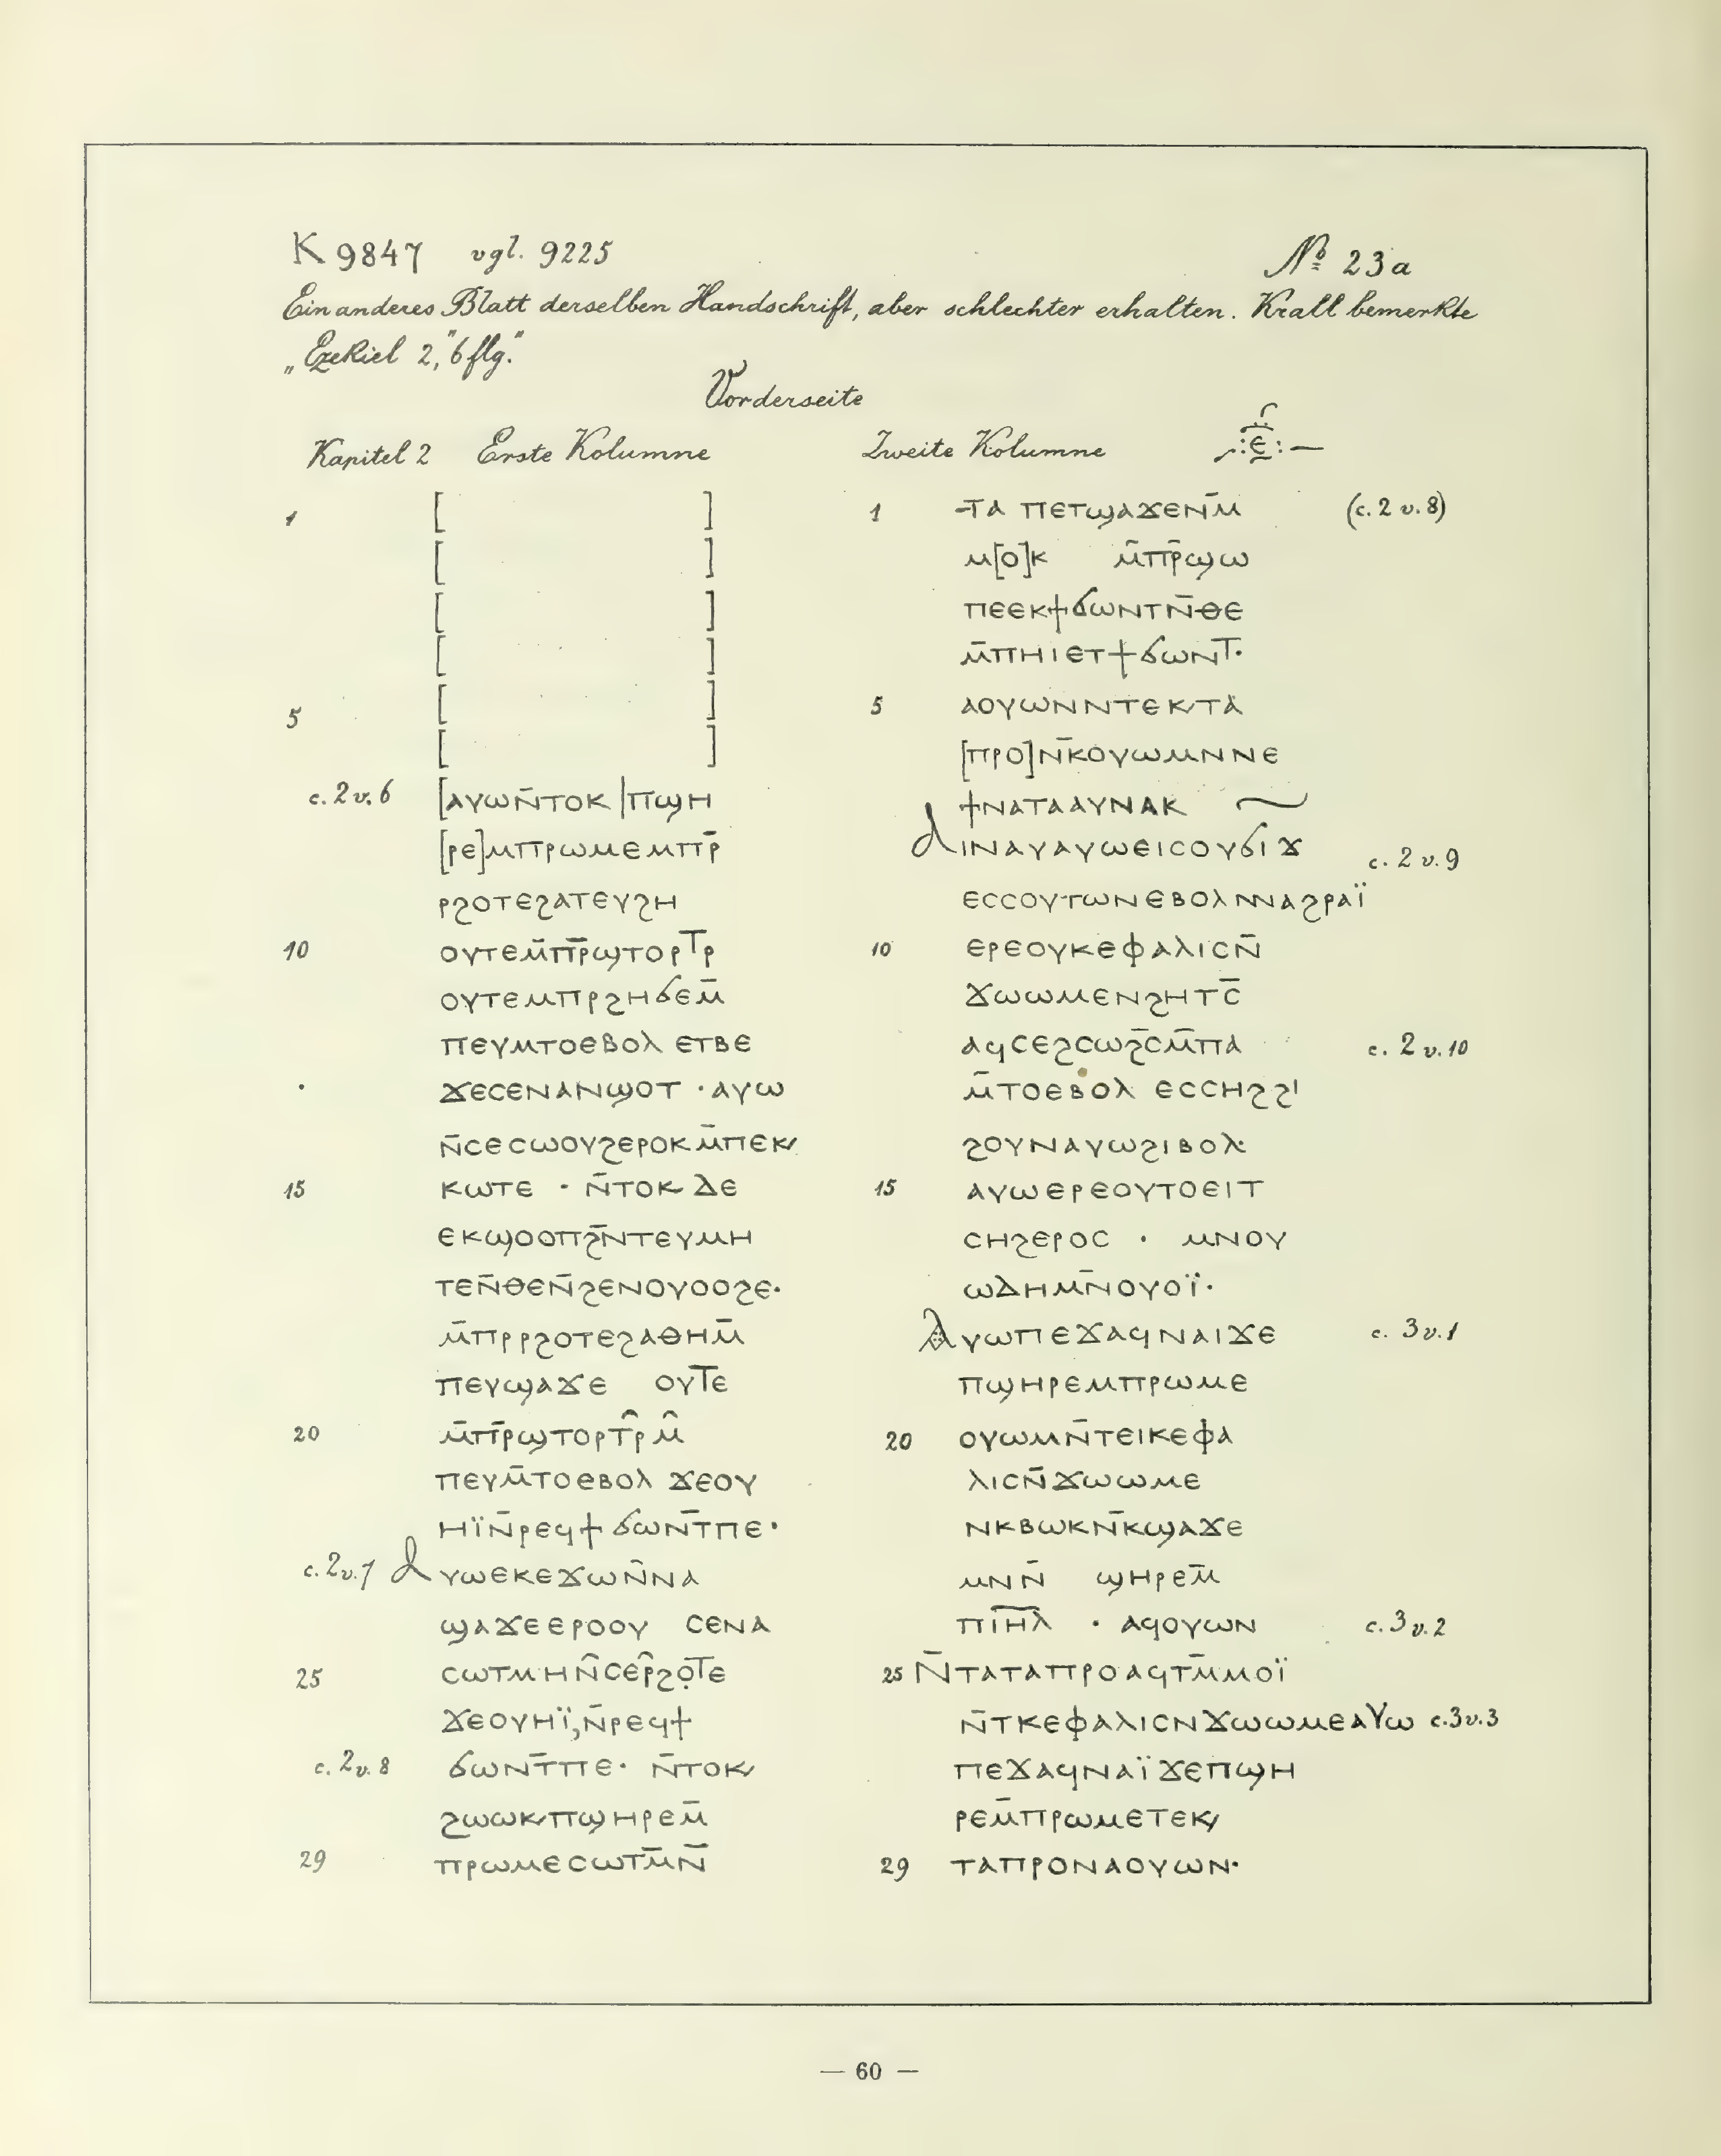 K 9847 vgl. 9225 № 23a
Ein anderes Blatt derselben Handschrift, aber schlechter erhalten. Krall bemerkte
„Ezekiel 2, 6 flg."
Vorderseite
Kapitel 2 Erste Kolumne
1 [ ]
[ ]
[ ]
[ ]
5 [ ]
[ ]
c. 2 v. 6 [ⲁⲩⲱⲛ̄ⲧⲟⲕ]ⲡϣⲏ
[ⲣⲉ]ⲙⲡⲣⲱⲙⲉⲙⲡⲣ̄
ⲣϩⲟⲧⲉϩⲁⲧⲉⲩϩⲏ
10 ⲟⲩⲧⲉⲙ̄ⲡⲣ̄ϣⲧⲟⲣⲧ̄ⲣ
ⲟⲩⲧⲉⲙⲡⲣϩⲏϭⲉⲙ̄
ⲡⲉⲩⲙⲧⲟⲉⲃⲟⲗ ⲉⲧⲃⲉ
ϫⲉⲥⲉⲛⲁⲛϣⲟⲧ · ⲁⲩⲱ
ⲛ̄ⲥⲉⲥⲱⲟⲩϩⲉⲣⲟⲕⲙ̄ⲡⲉⲕ
15 ⲕⲱⲧⲉ · ⲛ̄ⲧⲟⲕ ⲇⲉ
ⲉⲕϣⲟⲟⲡϩ̄ⲛⲧⲉⲩⲙⲏ
ⲧⲉⲛ̄ⲑⲉⲛ̄ϩⲉⲛⲟⲩⲟⲟϩⲉ·
ⲙ̄ⲡⲣⲣϩⲟⲧⲉϩⲁⲑⲏⲙ̄
ⲡⲉⲩϣⲁϫⲉ ⲟⲩⲧⲉ
20 ⲙ̄ⲡⲣ̄ϣⲧⲟⲣⲧ̂ⲣⲙ̂
ⲡⲉⲩⲙ̄ⲧⲟⲉⲃⲟⲗ ϫⲉⲟⲩ
ⲏⲓ̈ⲛ̄ⲣⲉϥϯϭⲱⲛ̄ⲧⲡⲉ·
c. 2 v. 7 ⲁⲩⲱⲉⲕⲉϫⲱⲛ̄ⲛⲁ
ϣⲁϫⲉⲉⲣⲟⲟⲩ ⲥⲉⲛⲁ
25 ⲥⲱⲧⲙⲏⲛ̂ⲥⲉⲣ̂ϩⲟ̣ⲧⲉ
ϫⲉⲟⲩⲏⲓ̈,ⲛ̄ⲣⲉϥϯ
c. 2 v. 8 ϭⲱⲛ̄ⲧⲡⲉ· ⲛ̄ⲧⲟⲕ
ϩⲱⲱⲕⲡϣⲏⲣⲉⲙ̄
29 ⲡⲣⲱⲙⲉⲥⲱⲧⲙ̄ⲛ̄
Zweite Kolumne :ⲉ̄:
1 -ⲧⲁ ⲡⲉⲧϣⲁϫⲉⲛⲙ̄ (c. 2 v. 8)
ⲙ[ⲟ]ⲕ ⲙ̄ⲡⲣ̄ϣⲱ
ⲡⲉⲉⲕϯϭⲱⲛⲧⲛ̄ⲑⲉ
ⲙ̄ⲡⲏⲓⲉⲧϯϭⲱⲛⲧ̄·
5 ⲁⲟⲩⲱⲛⲛⲧⲉⲕⲧⲁ̈
[ⲡⲣⲟ]ⲛ̄ⲕⲟⲩⲱⲙⲛⲛⲉ
ϯⲛⲁⲧⲁⲁⲩⲛⲁⲕ
ⲁⲓⲛⲁⲩⲁⲩⲱⲉⲓⲥⲟⲩϭⲓϫ c. 2 v. 9
ⲉⲥⲥⲟⲩⲧⲱⲛⲉⲃⲟⲗⲛⲛⲁϩⲣⲁⲓ̈
10 ⲉⲣⲉⲟⲩⲕⲉⲫⲁⲗⲓⲥⲛ̄
ϫⲱⲱⲙⲉⲛϩⲏⲧⲥ̄
ⲁϥⲥⲉϩⲥⲱϩ̄ⲥⲙ̄ⲡⲁ c. 2 v. 10
ⲙ̄ⲧⲟⲉⲃⲟⲗ ⲉⲥⲥⲏϩϩⲓ
ϩⲟⲩⲛⲁⲩⲱϩⲓⲃⲟⲗ·
15 ⲁⲩⲱⲉⲣⲉⲟⲩⲧⲟⲉⲓⲧ
ⲥⲏϩⲉⲣⲟⲥ · ⲙⲛⲟⲩ
ⲱⲇⲏⲙ̄ⲛⲟⲩⲟⲓ̈·
ⲁⲩⲱⲡⲉϫⲁϥⲛⲁⲓϫⲉ c. 3 v. 1
ⲡϣⲏⲣⲉⲙⲡⲣⲱⲙⲉ
20 ⲟⲩⲱⲙⲛ̄ⲧⲉⲓⲕⲉⲫⲁ
ⲗⲓⲥⲛ̄ϫⲱⲱⲙⲉ
ⲛⲕⲃⲱⲕⲛ̄ⲕϣⲁϫⲉ
ⲙⲛⲛ̄ ϣⲏⲣⲉⲙ̄
ⲡⲓ̄ⲏ̄ⲗ̄ · ⲁϥⲟⲩⲱⲛ c. 3 v. 2
25 ⲛ̄ⲧⲁⲧⲁⲡⲣⲟⲁϥⲧⲙ̄ⲙⲟⲓ̈
ⲛ̄ⲧⲕⲉⲫⲁⲗⲓⲥⲛϫⲱⲱⲙⲉⲁⲩⲱ c. 3 v. 3
ⲡⲉϫⲁϥⲛⲁⲓ̈ϫⲉⲡϣⲏ
ⲣⲉⲙ̄ⲡⲣⲱⲙⲉⲧⲉⲕ
29 ⲧⲁⲡⲣⲟⲛⲁⲟⲩⲱⲛ·
— 60 —